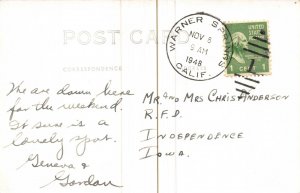 POST CARD
CORRESPONDENCE
WARNER SPRINGS
NOV 6
5 AM
1948
CALIF.
1
We are down here
for the weekend.
It sure is a
lovely spot.
Geneva &
Gordon
Mr and Mrs Chris Anderson
R.F.D.
INDEPENDENCE
IOWA.